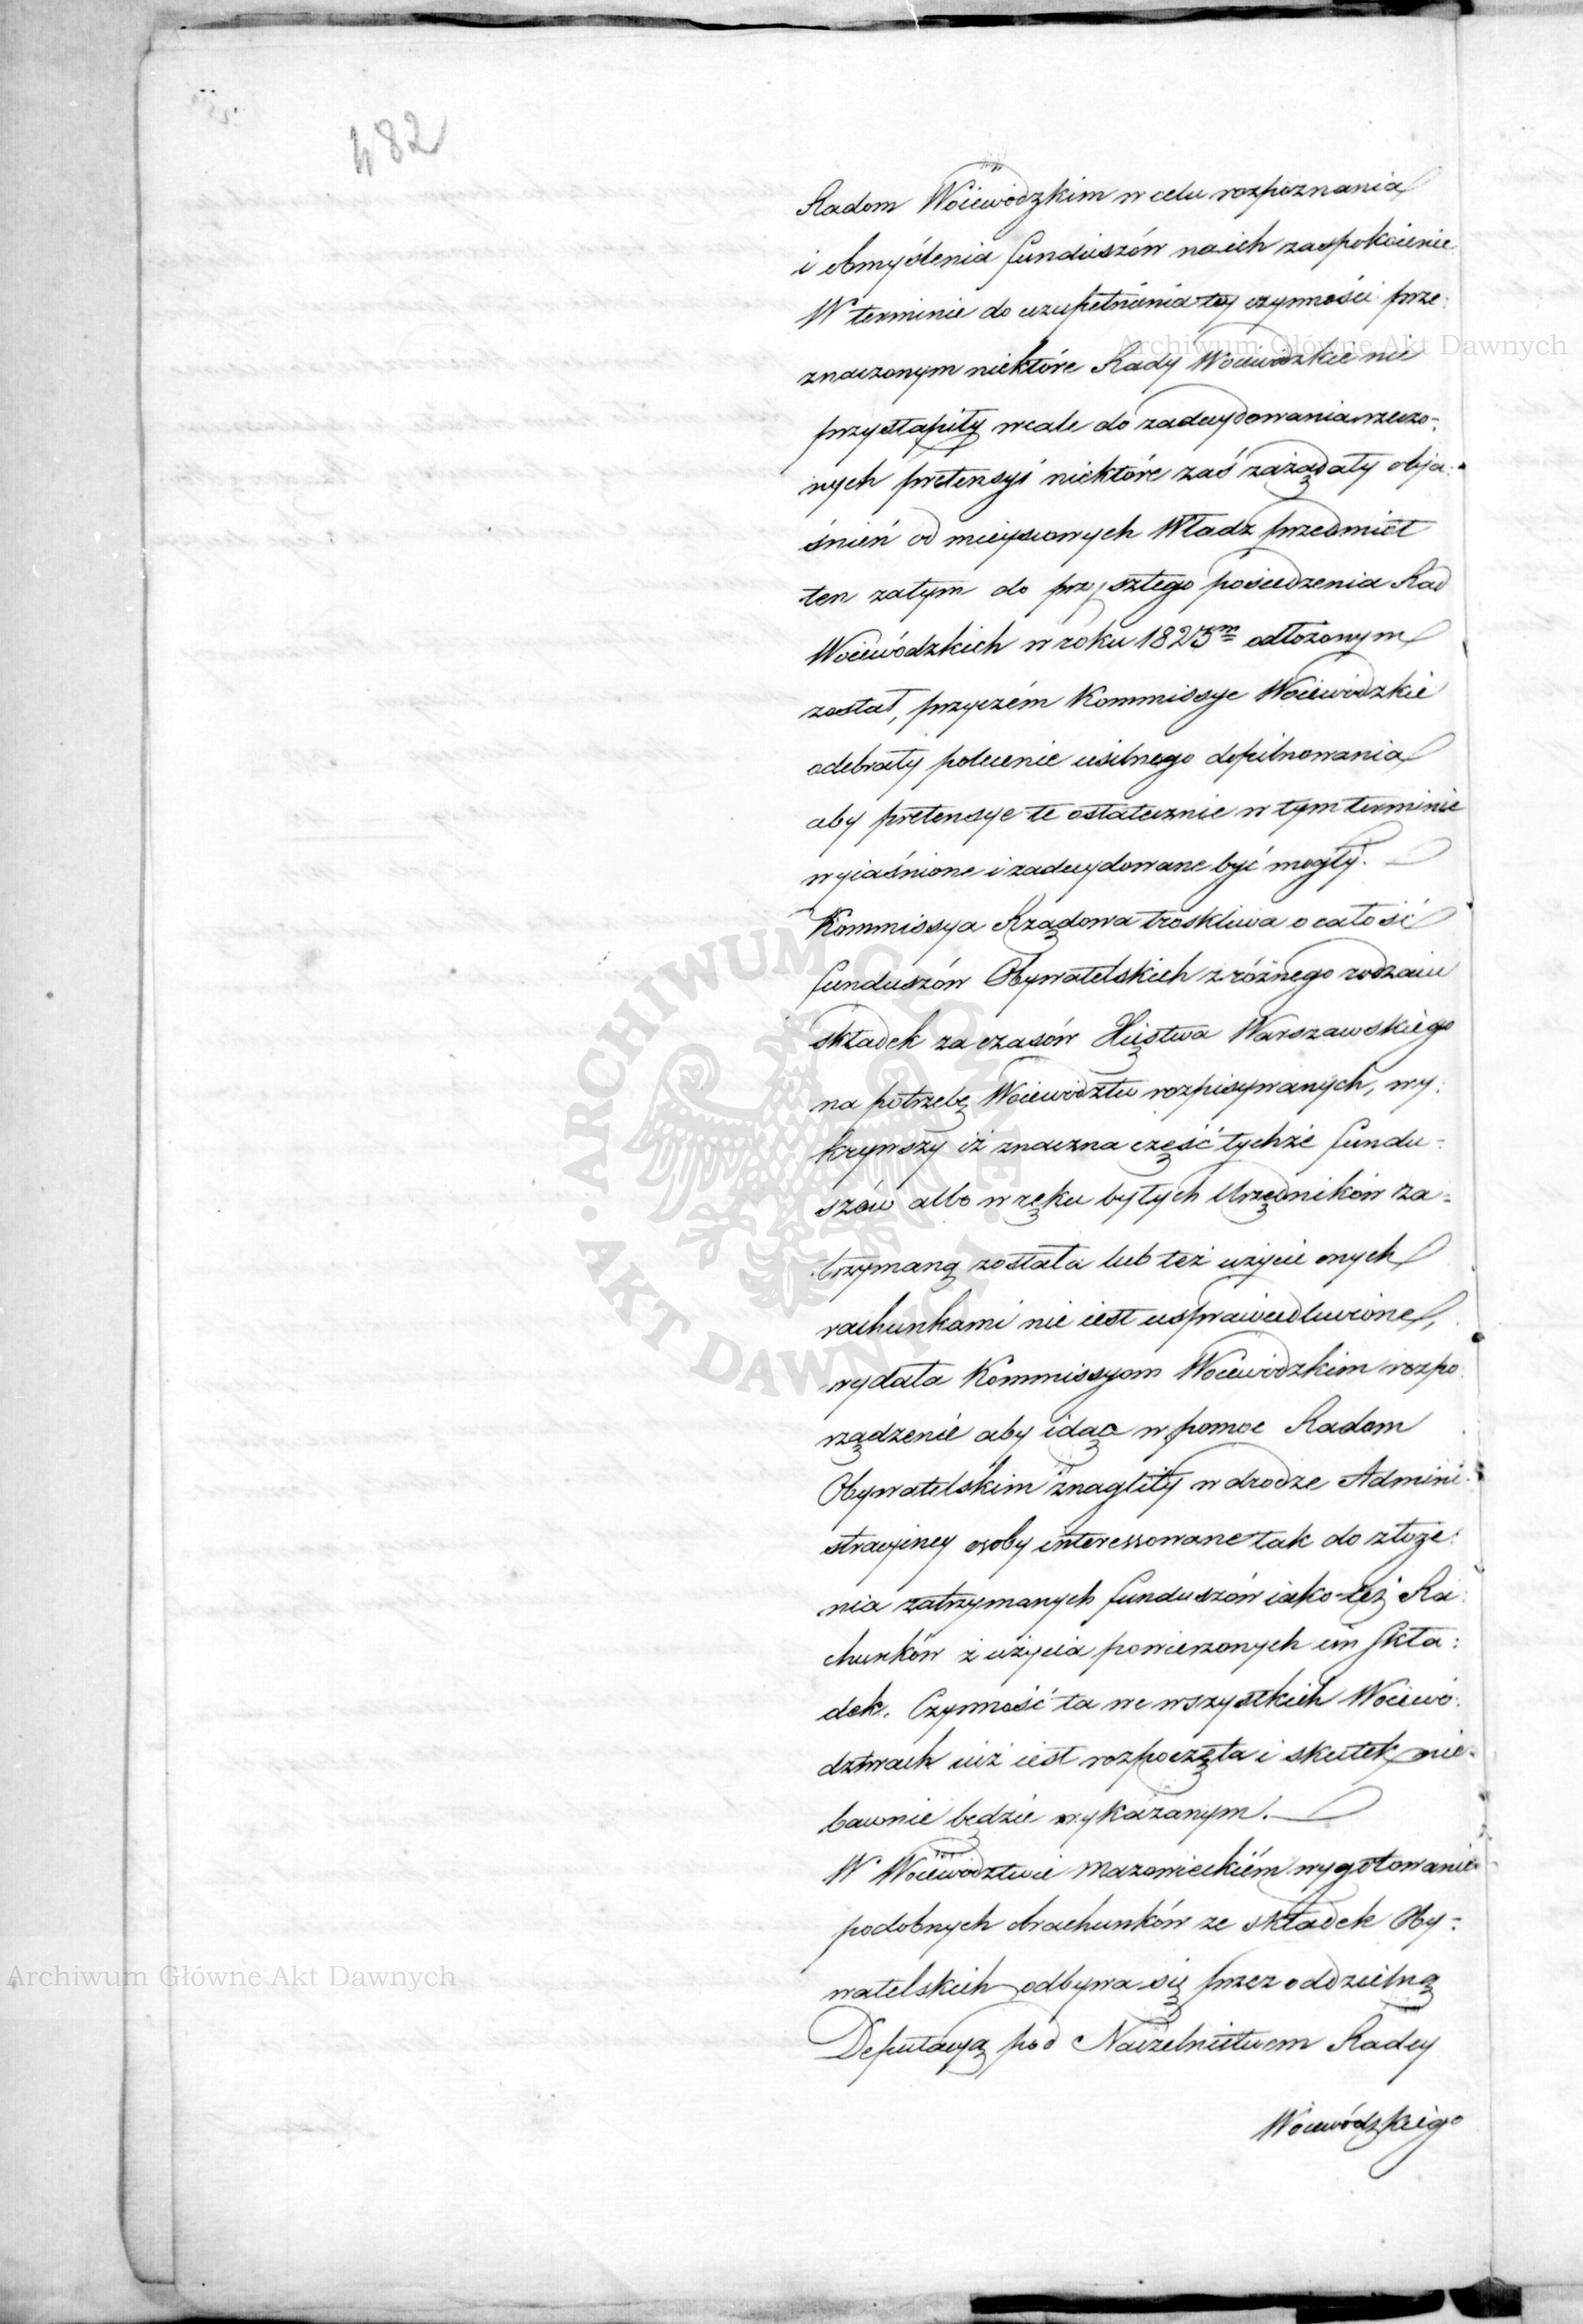 482
Radom Woiewodzkim w celu rozpoznania
i obmyślenia funduszów na ich zaspokoienie
W terminie do uzupełnienia tey czynności prze:
znaczonym niektóre Rady Woiewodzkie nie
przystąpiły wcale do zadecydowania rzeczo:
nych pretensyi niektóre zaś zażądały obja:
śnień od mieyscowych Władz przedmiot
ten zatym do przyszłego posiedzenia Rad
Woiewódzkich w roku 1823m odłożonym
został, przyczém Kommissye Woiewodzkie
odebrały polecenie usilnego dopilnowania
aby pretensye te ostatecznie w tym terminie
wyiaśnione i zadecydowane być mogły.
Kommissya Rządowa troskliwa o całość
funduszów Obywatelskich z różnego rodzaiu
składek za czasów Xięstwa Warszawskiego
na potrzebę Woiewodztw rozpisywanych, wy:
krywszy iż znaczna część tychże fundu:
szów albo w ręku byłych Urzędników za:
trzymaną została lub też użycie onych
rachunkami nie iest usprawiedliwione,
wydała Kommissyom Woiewodzkim rozpo
rządzenie aby idąc w pomoc Radom
Obywatelskim znagliły w drodze Admini:
stracyiney osoby interessowane tak do złoże:
nia zatrzymanych funduszów iako też Ra:
chunków z użycia powierzonych im skła:
dek. Czynność ta we wszystkich Woiewó:
dztwach iuż iest rozpoczęta i skutek nie:
bawnie będzie wykazanym.
W Woiewodztwie Mazowieckiém wygotowanie
podobnych obrachunków ze składek Oby:
watelskich odbywa się przez oddzielną
Deputacyą pod Naczelnictwem Radcy
Woiewódzkiego
Archiwum Główne Akt Dawnych
Archiwum Główne Akt Dawnych
ARCHIWUM GŁÓWNE
AKT DAWNYCH